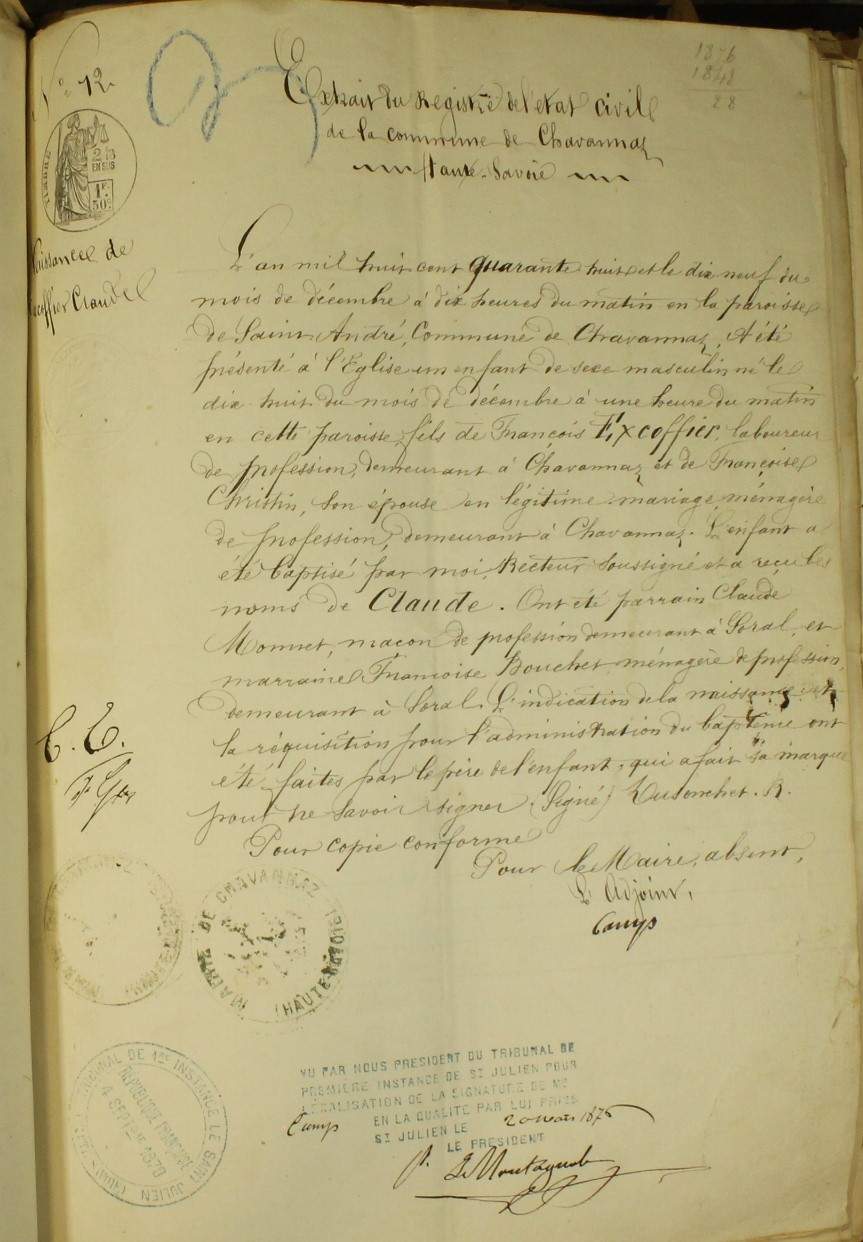 N° 12
1876
1848
28
Extrait du Registre de l'état civil
de la commune de Chavannaz
Haute-Savoie
TIMBRE
2/10
EN SUS
1F
50c
Naissance de
Excoffier Claude
L'an mil huit cent quarante huit et le dix neuf du
mois de décembre à dix heures du matin en la paroisse
de Saint André, Commune de Chavannaz, A été
présenté à l'Eglise un enfant de sexe masculin né le
dix huit du mois de décembre à une heure du matin
en cette paroisse, fils de François Excoffier, laboureur
de profession, demeurant à Chavannaz et de Françoise
Christin, son épouse en légitime mariage, ménagère
de profession, demeurant à Chavannaz. L'enfant a
été baptisé par moi, Recteur soussigné et a reçu les
noms de Claude. Ont été parrain Claude
Monnet, maçon de profession demeurant à Soral, et
marraine Françoise Bouchet ménagère de profession,
demeurant à Soral. L'indication de la naissance et
la réquisition pour l'administration du baptême ont
été faites par le père de l'enfant, qui a fait sa marque
pour ne savoir signer. (Signé)
Pour copie conforme
Pour le Maire, absent,
L'Adjoint,
Camp
MAIRIE DE CHAVANNAZ
(HAUTE-SAVOIE)
TRIBUNAL DE 1ère INSTANCE DE SAINT JULIEN
REPUBLIQUE FRANÇAISE
4 SEPTEMBRE 1870
VU PAR NOUS PRESIDENT DU TRIBUNAL DE
PREMIERE INSTANCE DE ST JULIEN POUR
LEGALISATION DE LA SIGNATURE DE MR
Camp EN LA QUALITE PAR LUI PRISE
ST JULIEN LE 20 mars 1876
LE PRESIDENT